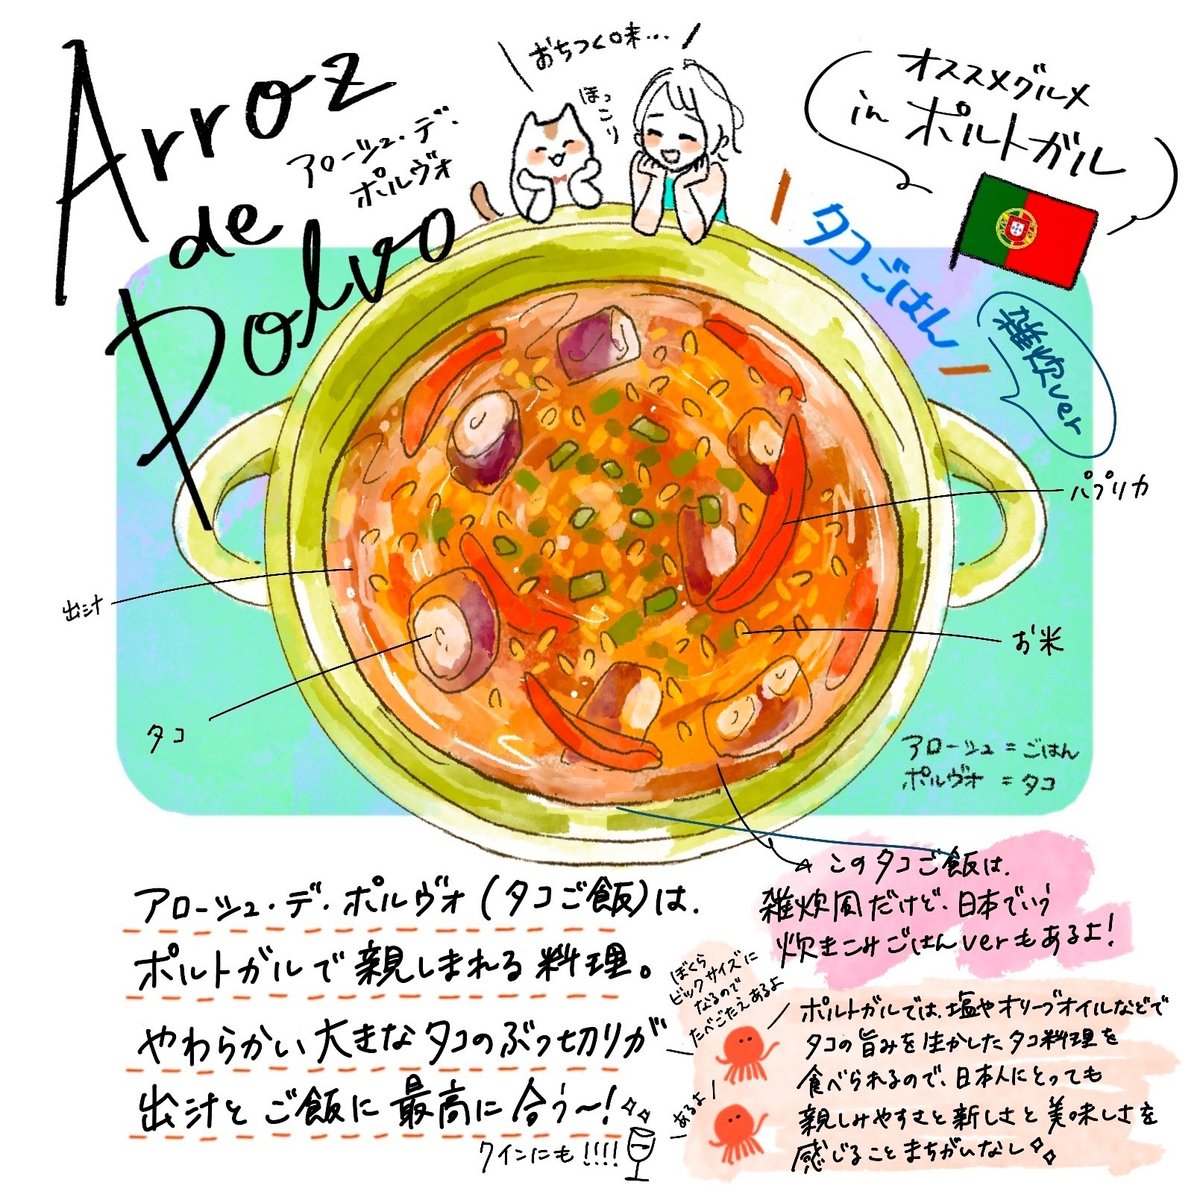 Arroz
de
Polvo
アローシュ・デ・
ポルヴォ
おちつく味…
ほっこり
オススメグルメ
in ポルトガル
タコごはん
雑炊ver
パプリカ
出汁
お米
タコ
アローシュ=ごはん
ポルヴォ=タコ
このタコご飯は、
雑炊風だけど、日本でいう
炊きこみごはんverもあるよ!
アローシュ・デ・ポルヴォ(タコご飯)は、
ポルトガルで親しまれる料理。
やわらかい大きなタコのぶつ切りが
出汁とご飯に最高に合う〜!
ワインにも!!!!
ぼくら
ビックサイズに
なるので
たべごたえあるよ
あるよ
ポルトガルでは、塩やオリーブオイルなどで
タコの旨みを生かしたタコ料理を
食べられるので、日本人にとっても
親しみやすさと新しさと美味しさを
感じることまちがいなし